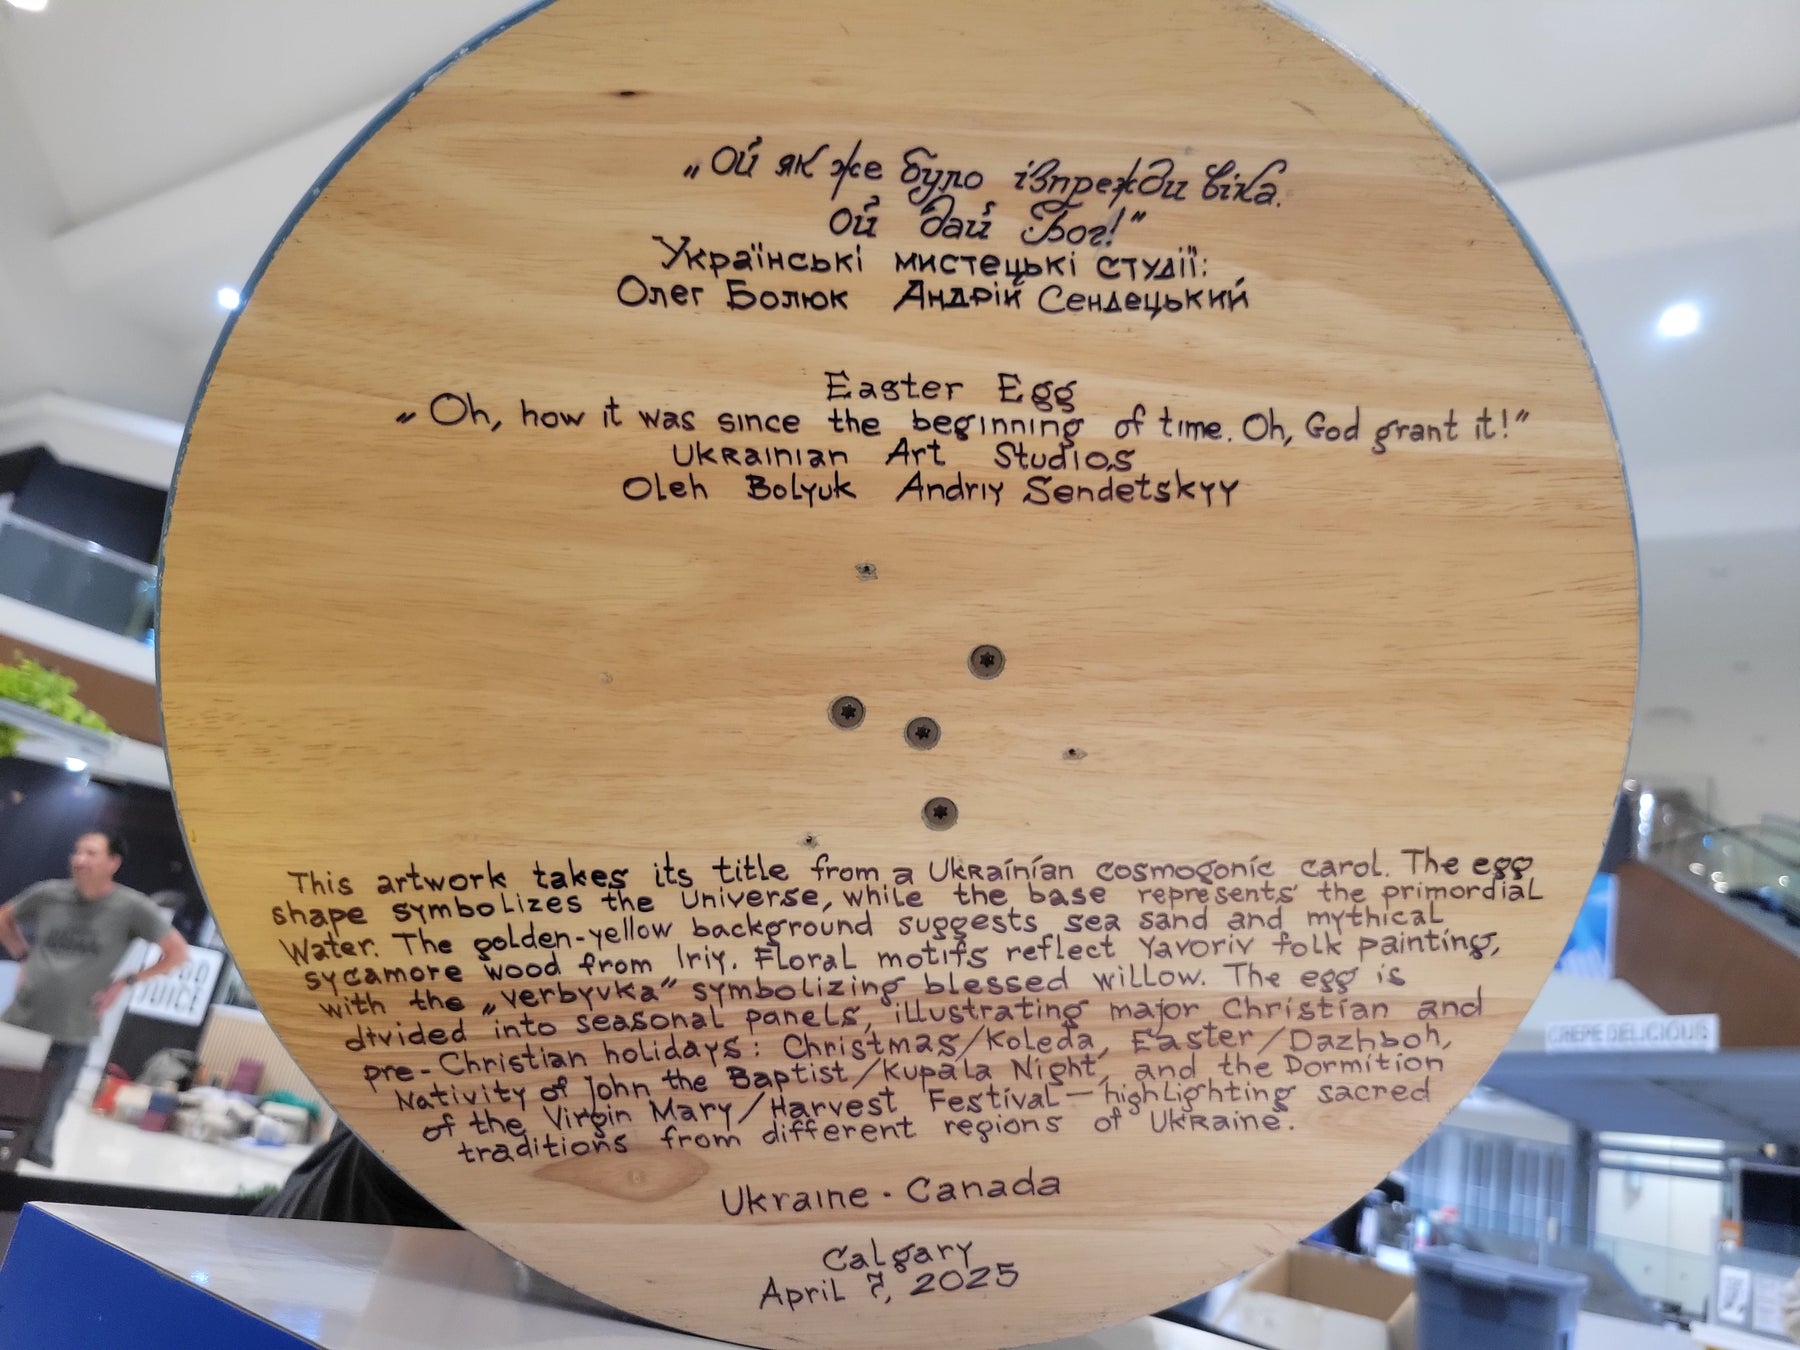 „Ой як же було ізпрежди віка.
Ой дай Бог!"
Українські мистецькі студії:
Олег Болюк Андрій Сендецький
Easter Egg
„Oh, how it was since the beginning of time. Oh, God grant it!"
Ukrainian Art Studios
Oleh Bolyuk Andriy Sendetskyy
This artwork takes its title from a Ukrainian cosmogonic carol. The egg
shape symbolizes the Universe, while the base represents the primordial
Water. The golden-yellow background suggests sea sand and mythical
sycamore wood from Iriy. Floral motifs reflect Yavoriv folk painting,
with the „verbyvka" symbolizing blessed willow. The egg is
divided into seasonal panels, illustrating major Christian and
pre-Christian holidays: Christmas/Koleda, Easter/Dazhboh,
Nativity of John the Baptist/Kupala Night, and the Dormition
of the Virgin Mary/Harvest Festival—highlighting sacred
traditions from different regions of Ukraine.
Ukraine · Canada
Calgary
April 7, 2025
JUICE
CREPE DELICIOUS